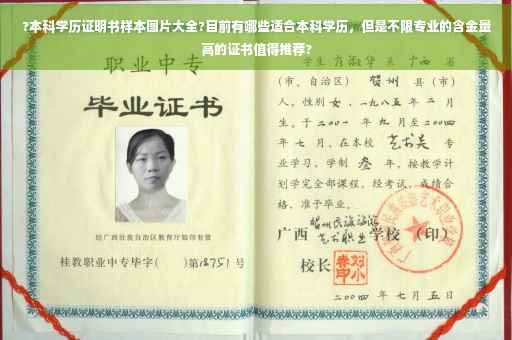 ?本科学历证明书样本图片大全?目前有哪些适合本科学历，但是不限专业的含金量最
高的证书值得推荐?
职业中专
毕业证书
经广西壮族自治区教育厅验印有效
桂教职业中专毕字（　）第18751号
学生 系 广西 省
（市、自治区） 贺州 县（市）
人，性别 女，一九八五年 二 月
生。于二〇〇一年 九 月至二〇〇四
年 七 月，在本校 专
业学习，学制 叁 年，按教学计
划学完全部课程，经考试，成绩合
格，准予毕业。
贺州民族旅游
广西 艺术职业 学校（印）
校长
二〇〇四年 七 月 五 日